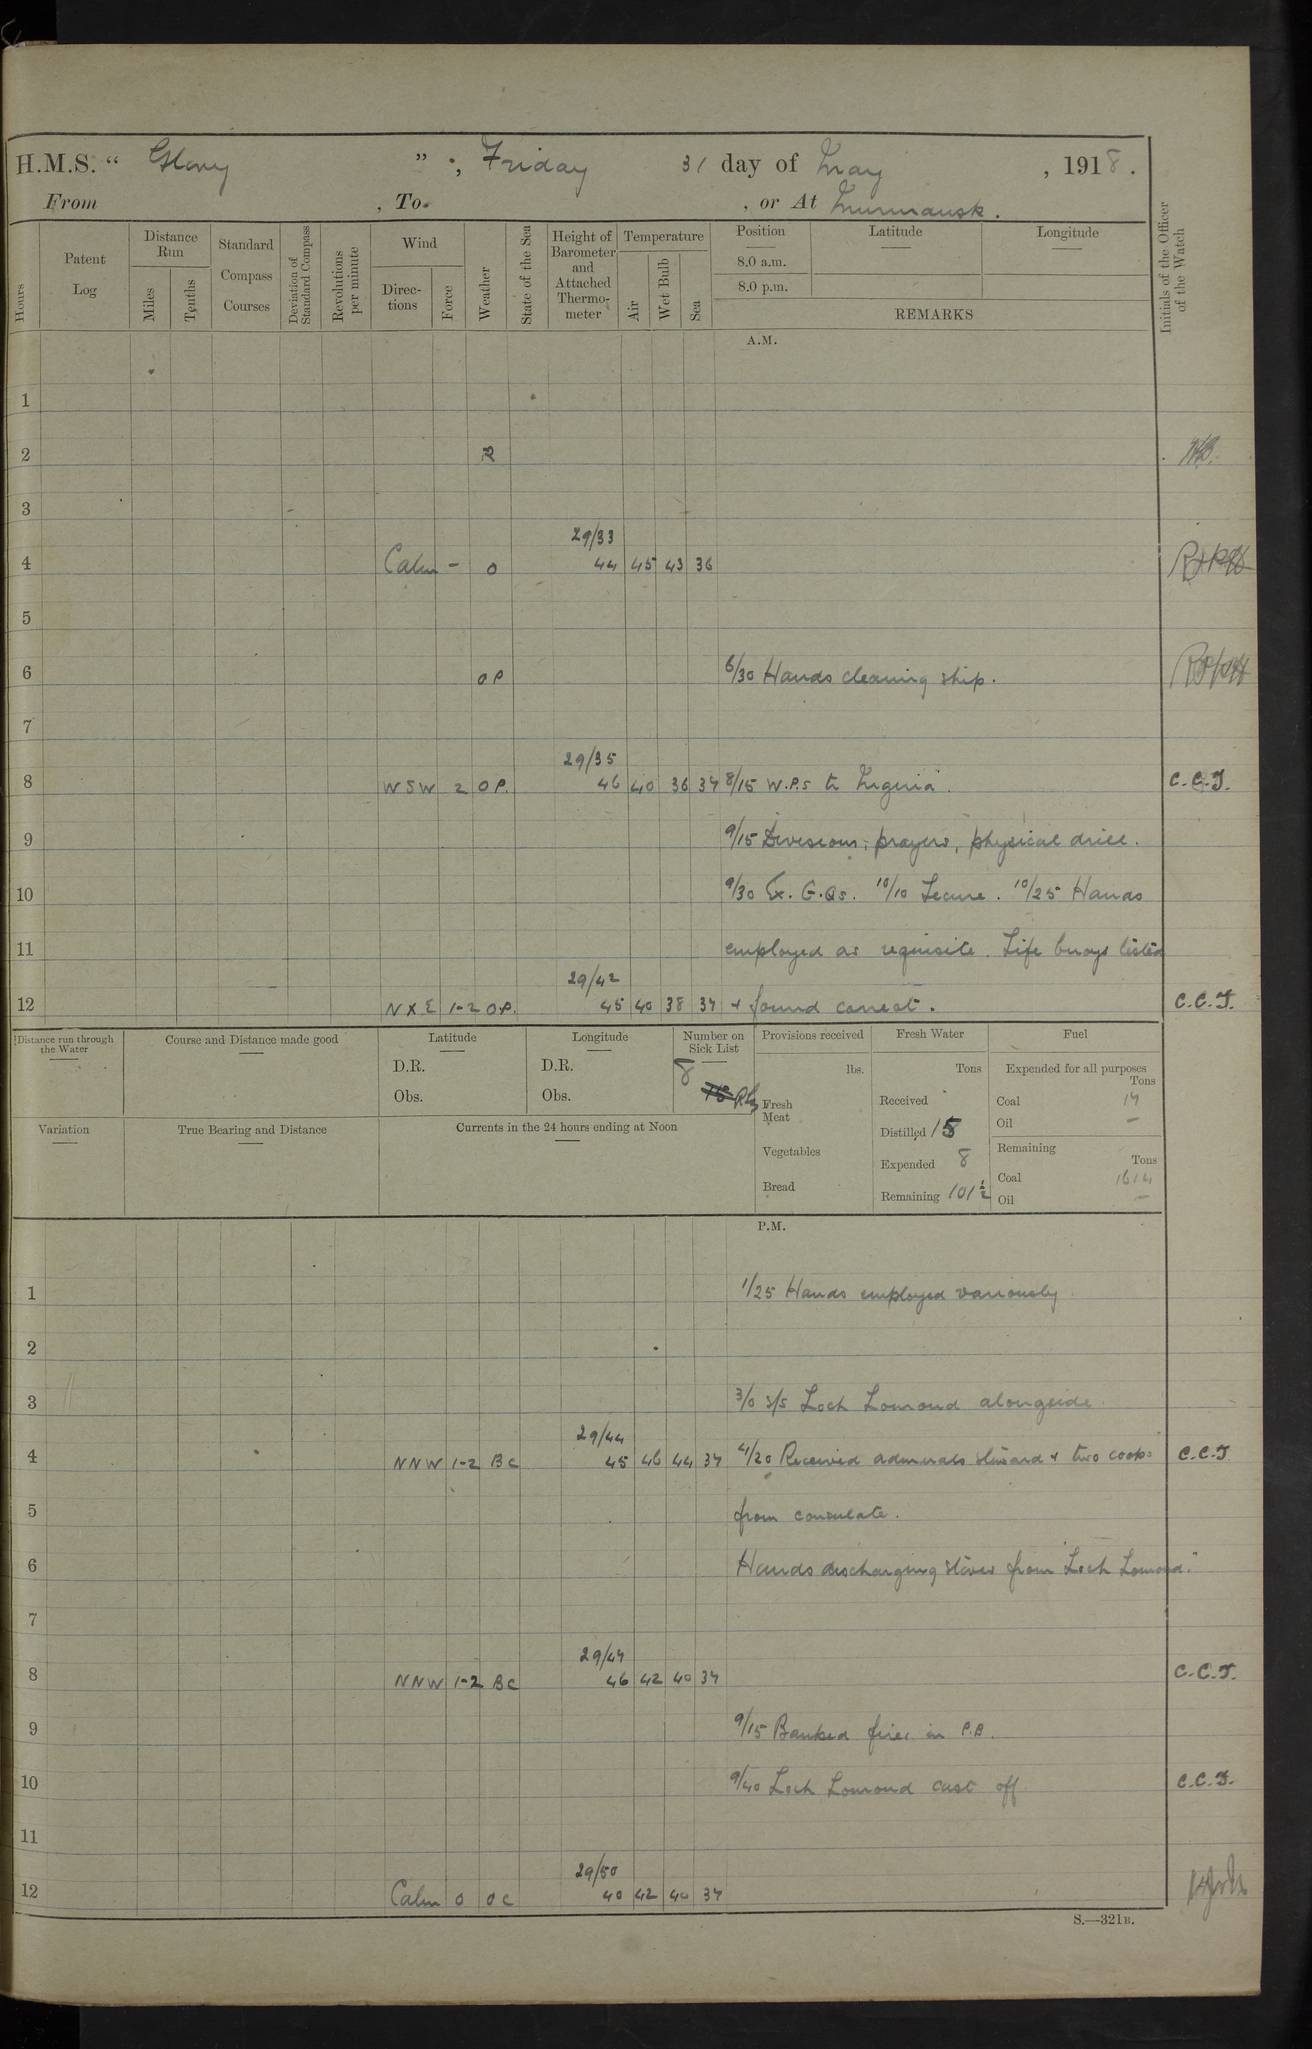 H.M.S. “ Glory ” ; Friday 31 day of May , 1918 .
From , To , or At Murmansk .
Hours
Patent Log
Distance Run
Miles
Tenths
Standard Compass Courses
Deviation of Standard Compass
Revolutions per minute
Wind
Directions
Force
Weather
State of the Sea
Height of Barometer and Attached Thermometer
Temperature
Air
Wet Bulb
Sea
Position
8.0 a.m.
8.0 p.m.
Latitude
Longitude
REMARKS
Initials of the Officer of the Watch
A.M.
1
2 R
3
29/33
4 Calm - 0 44 45 43 36
5
6 OP 6/30 Hands cleaning ship.
7
29/35
8 WSW 2 O.P. 46 40 36 37 8/15 W.P.S to Nigeria. C.C.T.
9 9/15 Divisions, prayers, physical drill.
10 9/30 Ex. G.Qs. 10/10 Secure. 10/25 Hands
11 employed as requisite. Life buoys tested
29/42
12 NXE 1-2 O.P. 45 40 38 37 + found correct. C.C.T.
Distance run through the Water
Course and Distance made good
Latitude
D.R.
Obs.
Longitude
D.R.
Obs.
Number on Sick List
8
Provisions received
lbs.
Fresh Meat
Vegetables
Bread
Fresh Water
Tons
Received
Distilled 15
Expended 8
Remaining 101½
Fuel
Expended for all purposes
Tons
Coal 17
Oil —
Remaining
Tons
Coal 1614
Oil —
Variation
True Bearing and Distance
Currents in the 24 hours ending at Noon
P.M.
1 1/25 Hands employed variously
2
3 3/0 S/S Loch Lomond alongside
29/44
4 NNW 1-2 BC 45 46 44 37 4/20 Received admirals steward + two cooks C.C.T
5 from consulate.
6 Hands discharging stores from "Loch Lomond."
7
29/47
8 NNW 1-2 BC 46 42 40 37 C.C.T.
9 9/15 Banked fires in P.B.
10 9/40 Loch Lomond cast off C.C.T.
11
29/50
12 Calm 0 OC 40 42 40 37
S.—321B.